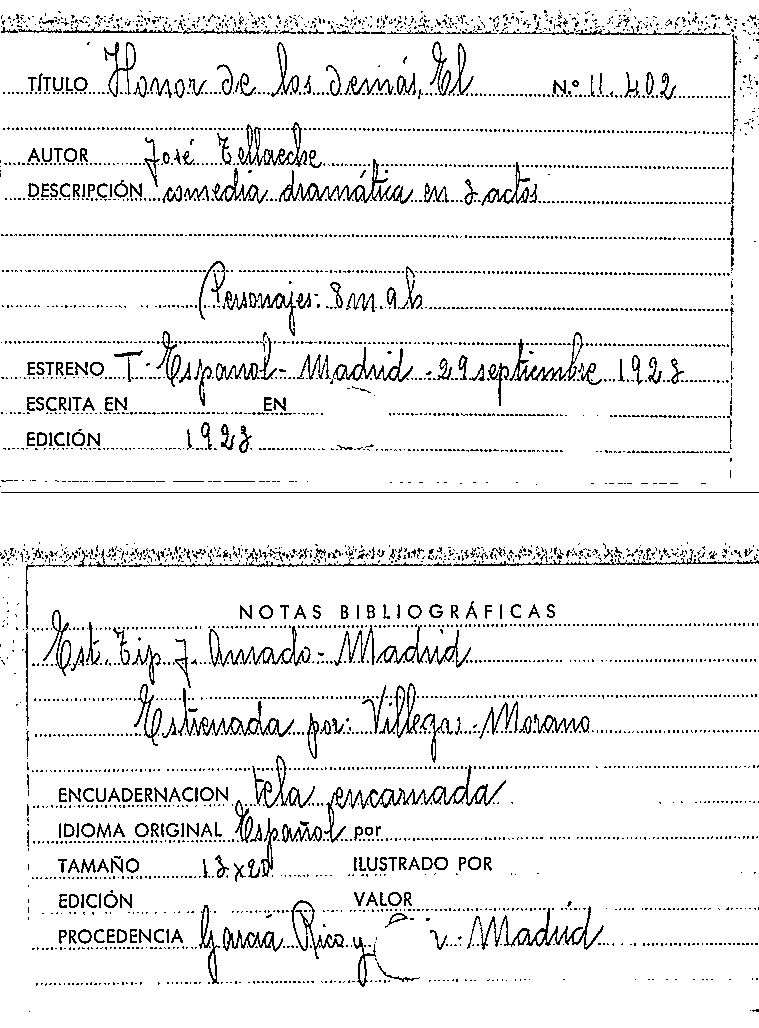 TÍTULO Honor de los demás, El Nº 11.402
AUTOR José Tellaeche
DESCRIPCIÓN comedia dramática en 3 actos
Personajes: 8 m. 9 h
ESTRENO T. Español - Madrid - 29 septiembre 1923
ESCRITA EN EN
EDICIÓN 1923
NOTAS BIBLIOGRÁFICAS
Est. Tip. J. Amado - Madrid
Estrenada por: Villegas - Morano
ENCUADERNACION tela encarnada
IDIOMA ORIGINAL Español por
TAMAÑO 13x20 ILUSTRADO POR
EDICIÓN VALOR
PROCEDENCIA García Rico y - Madrid